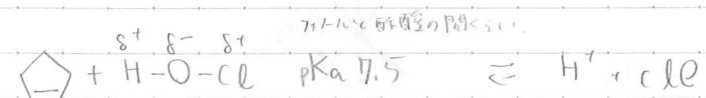 フェノールと酢酸の間くらい.
δ+ δ- δ+
+ H-O-Cl pKa 7.5 ⇌ H⁺ + clO